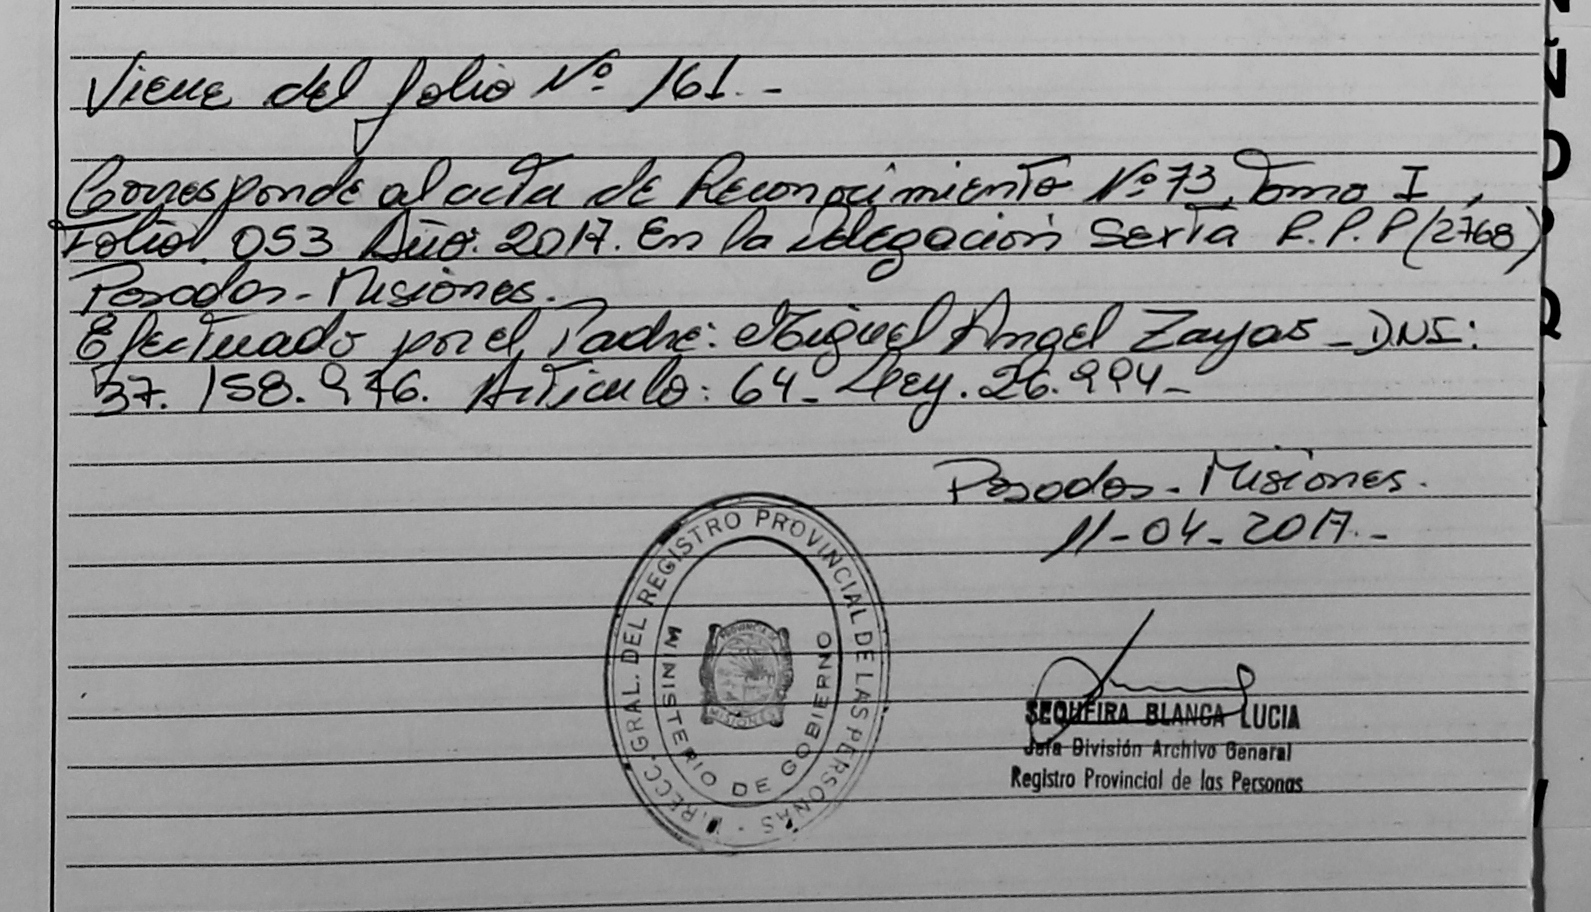 Viene del folio Nº 161.-
Corresponde al acta de Reconocimiento Nº 73, Tomo I,
Folio. 053 Año. 2017. En la Delegación Sexta R.P.P (2768)
Posadas - Misiones.
Efectuado por el Padre: Miguel Angel Zayas - D.N.I:
37.158.976. Artículo: 64- Ley. 26.994-
Posadas - Misiones.
11-04-2017.-
DIRECC. GRAL. DEL REGISTRO PROVINCIAL DE LAS PERSONAS -
MINISTERIO DE GOBIERNO
PROVINCIA DE
MISIONES
SEQUEIRA BLANCA LUCIA
Jefa División Archivo General
Registro Provincial de las Personas